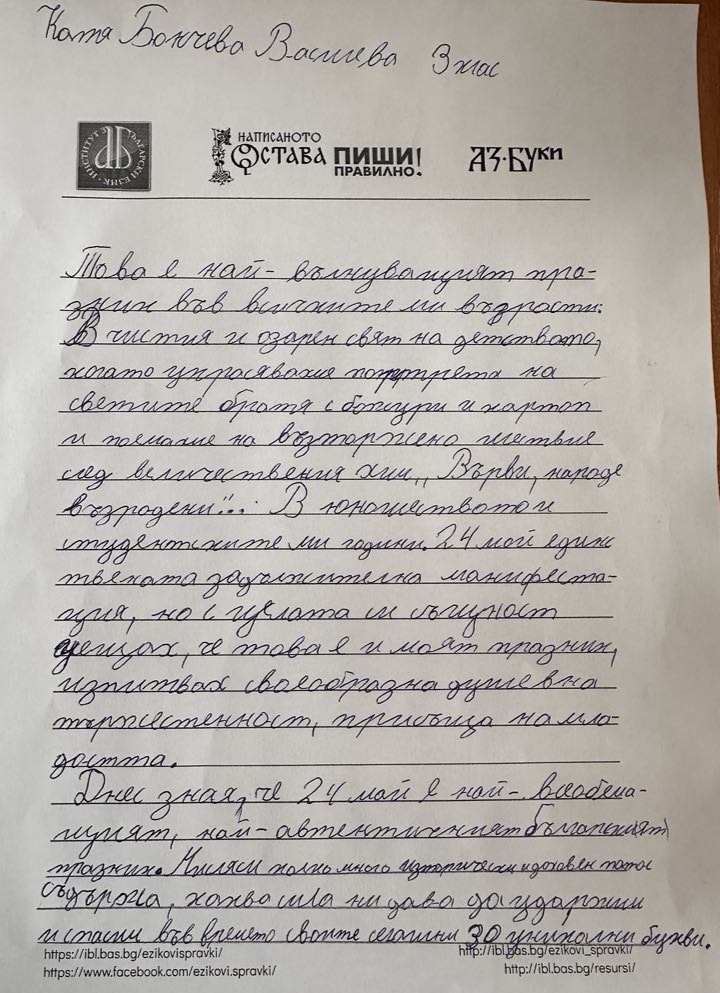 Катя Бончева Василева 3 клас
ИНСТИТУТ ЗА БЪЛГАРСКИ ЕЗИК
НАПИСАНОТО ОСТАВА ПИШИ ПРАВИЛНО! АЗ·БУКИ
Това е най-вълнуващият пра-
зник във всичките ми въдрасти.
В чистия и озарен свят на детството,
когато украсявахме портрета на
светите братя с божури и картоп
и поемахме на възторжено шествие
след величествения химн „Върви, народе
възродени"... В юношеството и
студентските ми години. 24 май единс
твената задължителна манифеста-
ция, но с цялата си същност
усещах, че това е и моят празник,
изпитвах своеобразна душевна
тържественост, присъща на мла-
достта.
Днес зная, че 24 май е най-всеобема-
щият, най-автентичният български(ят)
празник. Мисля си колко много исторически и духовен патос
съдържа, каква сила ни дава да удържим
и спасим във времето своите сегашни 30 уникални букви.
https://ibl.bas.bg/ezikovispravki/ http://ibl.bas.bg/ezikovi_spravki/
https://www.facebook.com/ezikovi.spravki/ http://ibl.bas.bg/resursi/